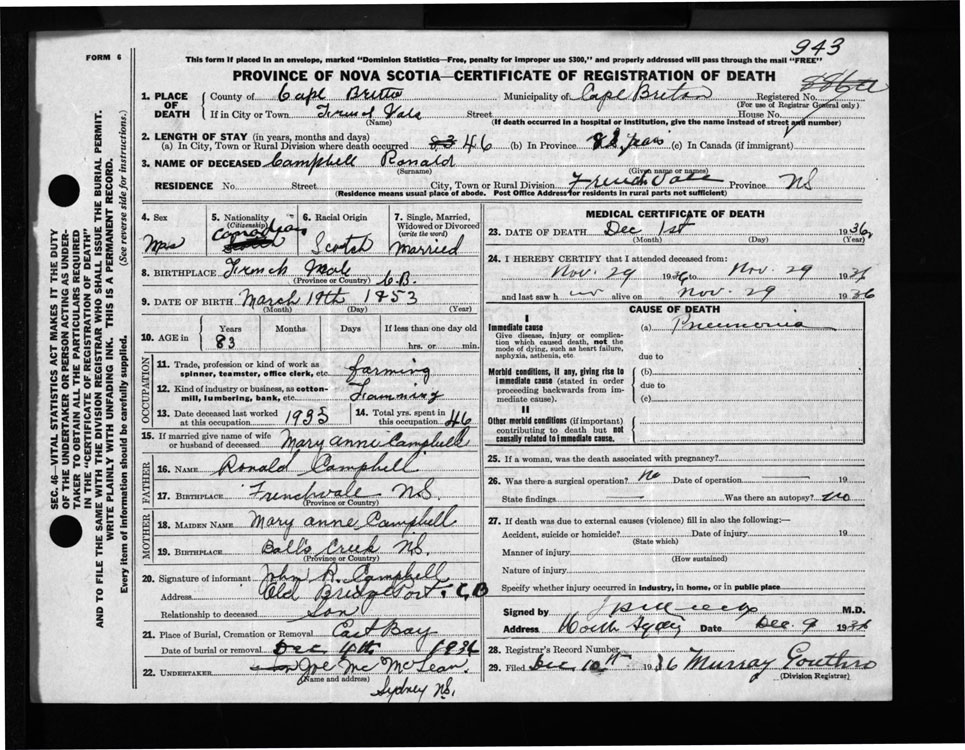 943
FORM 6
This form if placed in an envelope, marked "Dominion Statistics—Free, penalty for improper use $300," and properly addressed will pass through the mail "FREE"
PROVINCE OF NOVA SCOTIA—CERTIFICATE OF REGISTRATION OF DEATH
1. PLACE OF DEATH
County of Cape Breton Municipality of Cape Breton Registered No.
(For use of Registrar General only)
If in City or Town French Vale Street House No.
(Name) (If death occurred in a hospital or institution, give the name instead of street and number)
2. LENGTH OF STAY (in years, months and days)
(a) In City, Town or Rural Division where death occurred 83 46 (b) In Province 83 years (c) In Canada (if immigrant)
3. NAME OF DECEASED Campbell Ronald
(Surname) (Given name or names)
RESIDENCE No. Street City, Town or Rural Division French Vale Province NS
(Residence means usual place of abode. Post Office Address for residents in rural parts not sufficient)
4. Sex
5. Nationality (Citizenship) Canadian
6. Racial Origin Scotch
7. Single, Married, Widowed or Divorced (write the word) Married
8. BIRTHPLACE French Vale C.B.
(Province or Country)
9. DATE OF BIRTH March 19th 1853
(Month) (Day) (Year)
10. AGE in Years 83 Months Days If less than one day old hrs. or min.
OCCUPATION
11. Trade, profession or kind of work as spinner, teamster, office clerk, etc. farming
12. Kind of industry or business, as cotton-mill, lumbering, bank, etc. Farming
13. Date deceased last worked at this occupation 1935
14. Total yrs. spent in this occupation 46
15. If married give name of wife or husband of deceased Mary Anne Campbell
FATHER
16. NAME Ronald Campbell
17. BIRTHPLACE Frenchvale NS.
(Province or Country)
MOTHER
18. MAIDEN NAME Mary Anne Campbell
19. BIRTHPLACE Balls Creek NS.
(Province or Country)
20. Signature of informant John R. Campbell
Address Old Bridgeport, CB
Relationship to deceased Son
21. Place of Burial, Cremation or Removal East Bay
Date of burial or removal Dec 4th 1936
22. UNDERTAKER Joe Mc McLean
(Name and address)
Sydney NS.
MEDICAL CERTIFICATE OF DEATH
23. DATE OF DEATH Dec 1st 1936
(Month) (Day) (Year)
24. I HEREBY CERTIFY that I attended deceased from:
Nov. 29 1936 to Nov. 29 1936
and last saw h im alive on Nov. 29 1936
CAUSE OF DEATH
I
Immediate cause
Give disease, injury or complication which caused death, not the mode of dying, such as heart failure, asphyxia, asthenia, etc.
(a) Pneumonia
due to
Morbid conditions, if any, giving rise to immediate cause (stated in order proceeding backwards from immediate cause).
(b)
due to
(c)
II
Other morbid conditions (if important) contributing to death but not causally related to immediate cause.
25. If a woman, was the death associated with pregnancy?
26. Was there a surgical operation? No Date of operation 19
State findings Was there an autopsy? no
27. If death was due to external causes (violence) fill in also the following:—
Accident, suicide or homicide? Date of injury 19
(State which)
Manner of injury
(How sustained)
Nature of injury
Specify whether injury occurred in industry, in home, or in public place
Signed by M.D.
Address North Sydney Date Dec. 9 1936
28. Registrar's Record Number
29. Filed Dec 10th 1936 Murray Gouthro
(Division Registrar)
SEC. 46—VITAL STATISTICS ACT MAKES IT THE DUTY
OF THE UNDERTAKER OR PERSON ACTING AS UNDER-
TAKER TO OBTAIN ALL THE PARTICULARS REQUIRED
IN THE "CERTIFICATE OF REGISTRATION OF DEATH"
AND TO FILE THE SAME WITH THE DIVISION REGISTRAR WHO SHALL ISSUE THE BURIAL PERMIT.
WRITE PLAINLY WITH UNFADING INK. THIS IS A PERMANENT RECORD.
Every item of information should be carefully supplied. (See reverse side for instructions.)